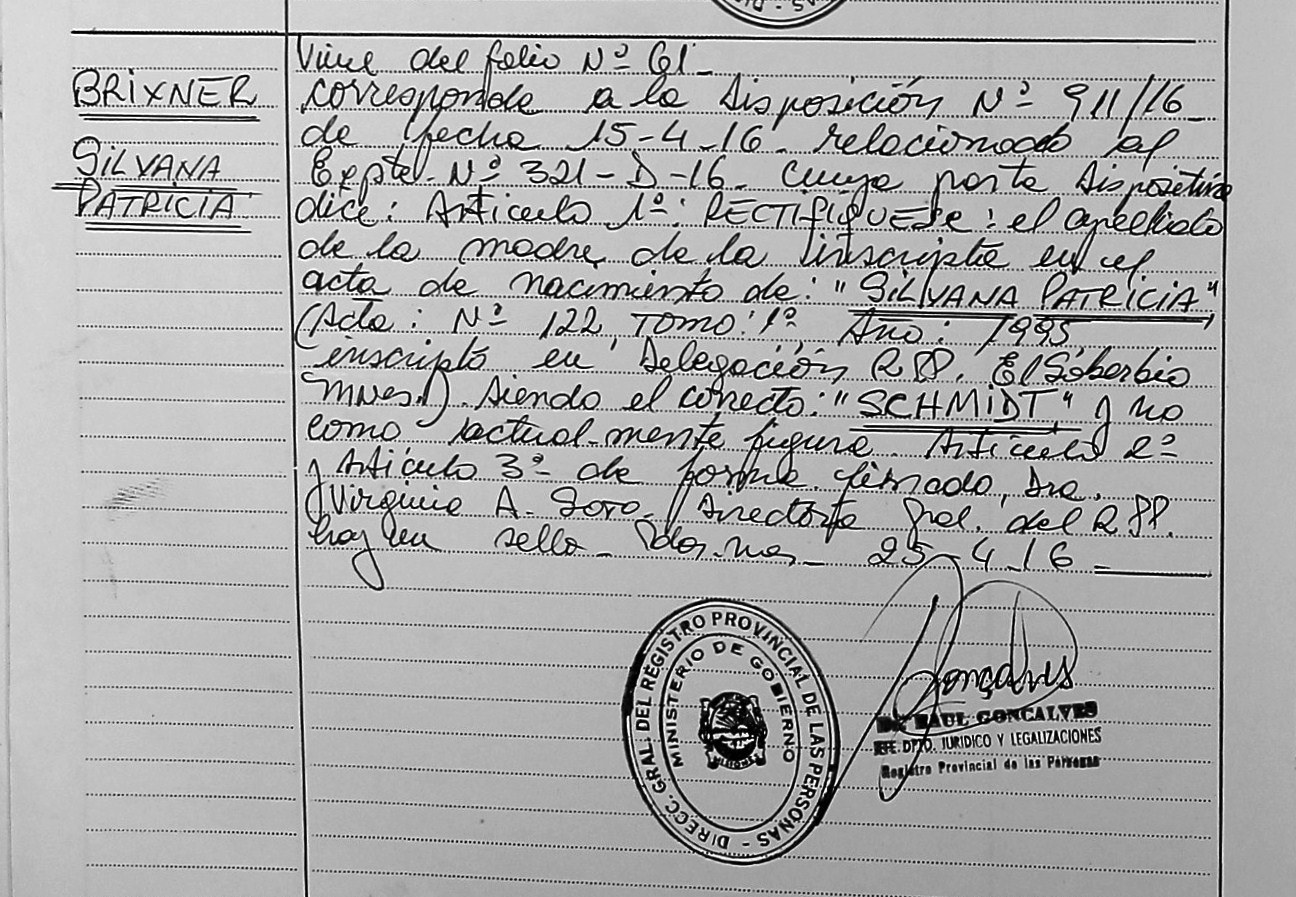 BRIXNER
SILVANA
PATRICIA
Viene del folio Nº 61_
corresponde a la Disposición Nº 911/16_
de fecha 15-4-16. relacionado al
Expte. Nº 321-D-16. cuya parte Dispositiva
dice: Articulo 1º: RECTIFIQUESE: el apellido
de la madre de la inscripta en el
acta de nacimiento de: "SILVANA PATRICIA"
(Acta: Nº 122, TOMO: 1º, Año: 1995,
inscripto en Delegación RPP. El Soberbio
Mnes.). siendo el correcto: "SCHMIDT" y no
como actual-mente figura. Articulo 2º
y Artículo 3º de forma. firmado, Dra.
Virginia A. Gral. del RPP.
hay un sello_ Pdas. Mnes_ 25-4-16
Goncalves
DR. RAUL GONCALVES
JEFE. DPTO. JURIDICO Y LEGALIZACIONES
Registro Provincial de las Personas
DIRECC. GRAL. DEL REGISTRO PROVINCIAL DE LAS PERSONAS -
MINISTERIO DE GOBIERNO
MISIONES